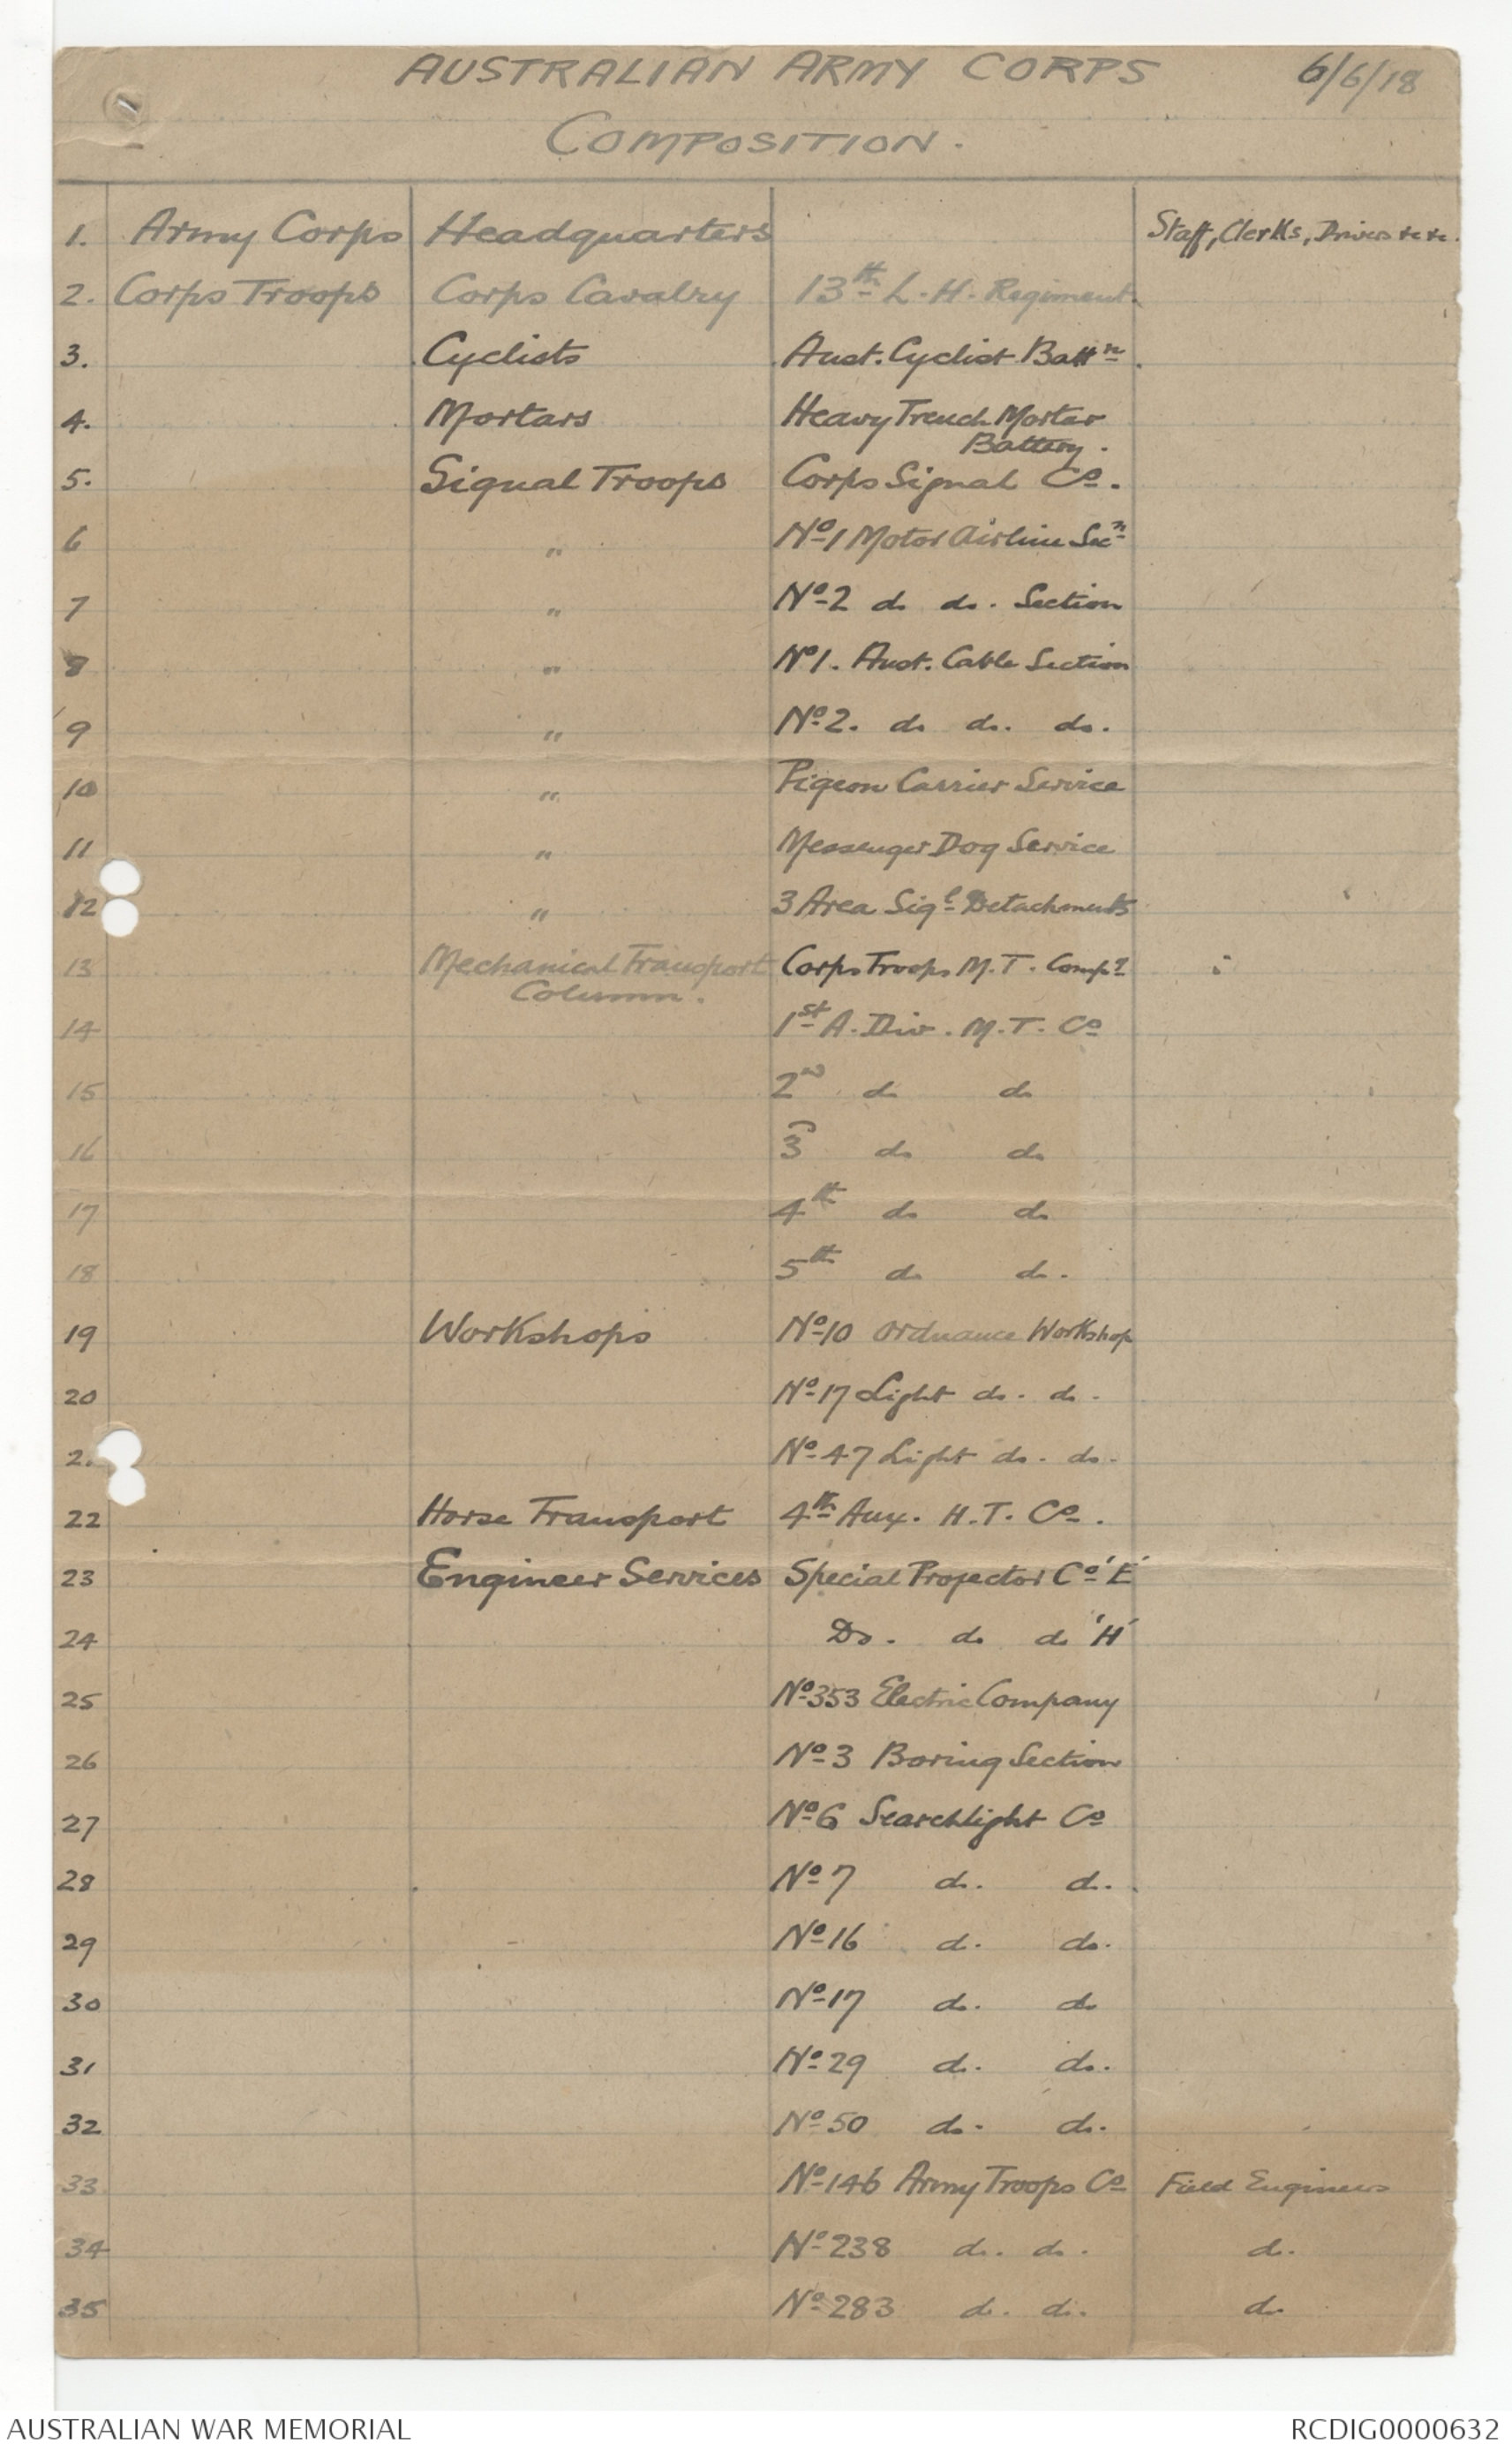 AUSTRALIAN ARMY CORPS 6/6/18
COMPOSITION.
1. Army Corps Headquarters Staff, Clerks, Drivers &c &c.
2. Corps Troops Corps Cavalry 13th L.H. Regiment
3. Cyclists Aust. Cyclist Battn
4. Mortars Heavy Trench Mortar
Battery.
5. Signal Troops Corps Signal Co.
6 " No 1 Motor Airline Secn
7 " No 2 do do. Section
8 " No 1. Aust. Cable Section
9 " No 2. do do. do.
10 " Pigeon Carrier Service
11 " Messenger Dog Service
12 " 3 Area Sigl Detachments
13 Mechanical Transport Corps Troops M.T. Compy
Column.
14 1st A. Div. M.T. Co
15 2nd do do
16 3 do do
17 4th do do
18 5th do do.
19 Workshops No 10 Ordnance Workshop
20 No 17 Light do. do.
2. No 47 Light do. do.
22 Horse Transport 4th Aux. H.T. Co.
23 Engineer Services Special Projector Co 'E'
24 Do. do do 'H'
25 No 353 Electric Company
26 No 3 Boring Section
27 No 6 Searchlight Co
28 No 7 do. do.
29 No 16 do. do.
30 No 17 do. do
31 No 29 do. do.
32 No 50 do. do.
33 No 146 Army Troops Co Field Engineers
34 No 238 do. do. do.
35 No 283 do. do. do
AUSTRALIAN WAR MEMORIAL RCDIG0000632